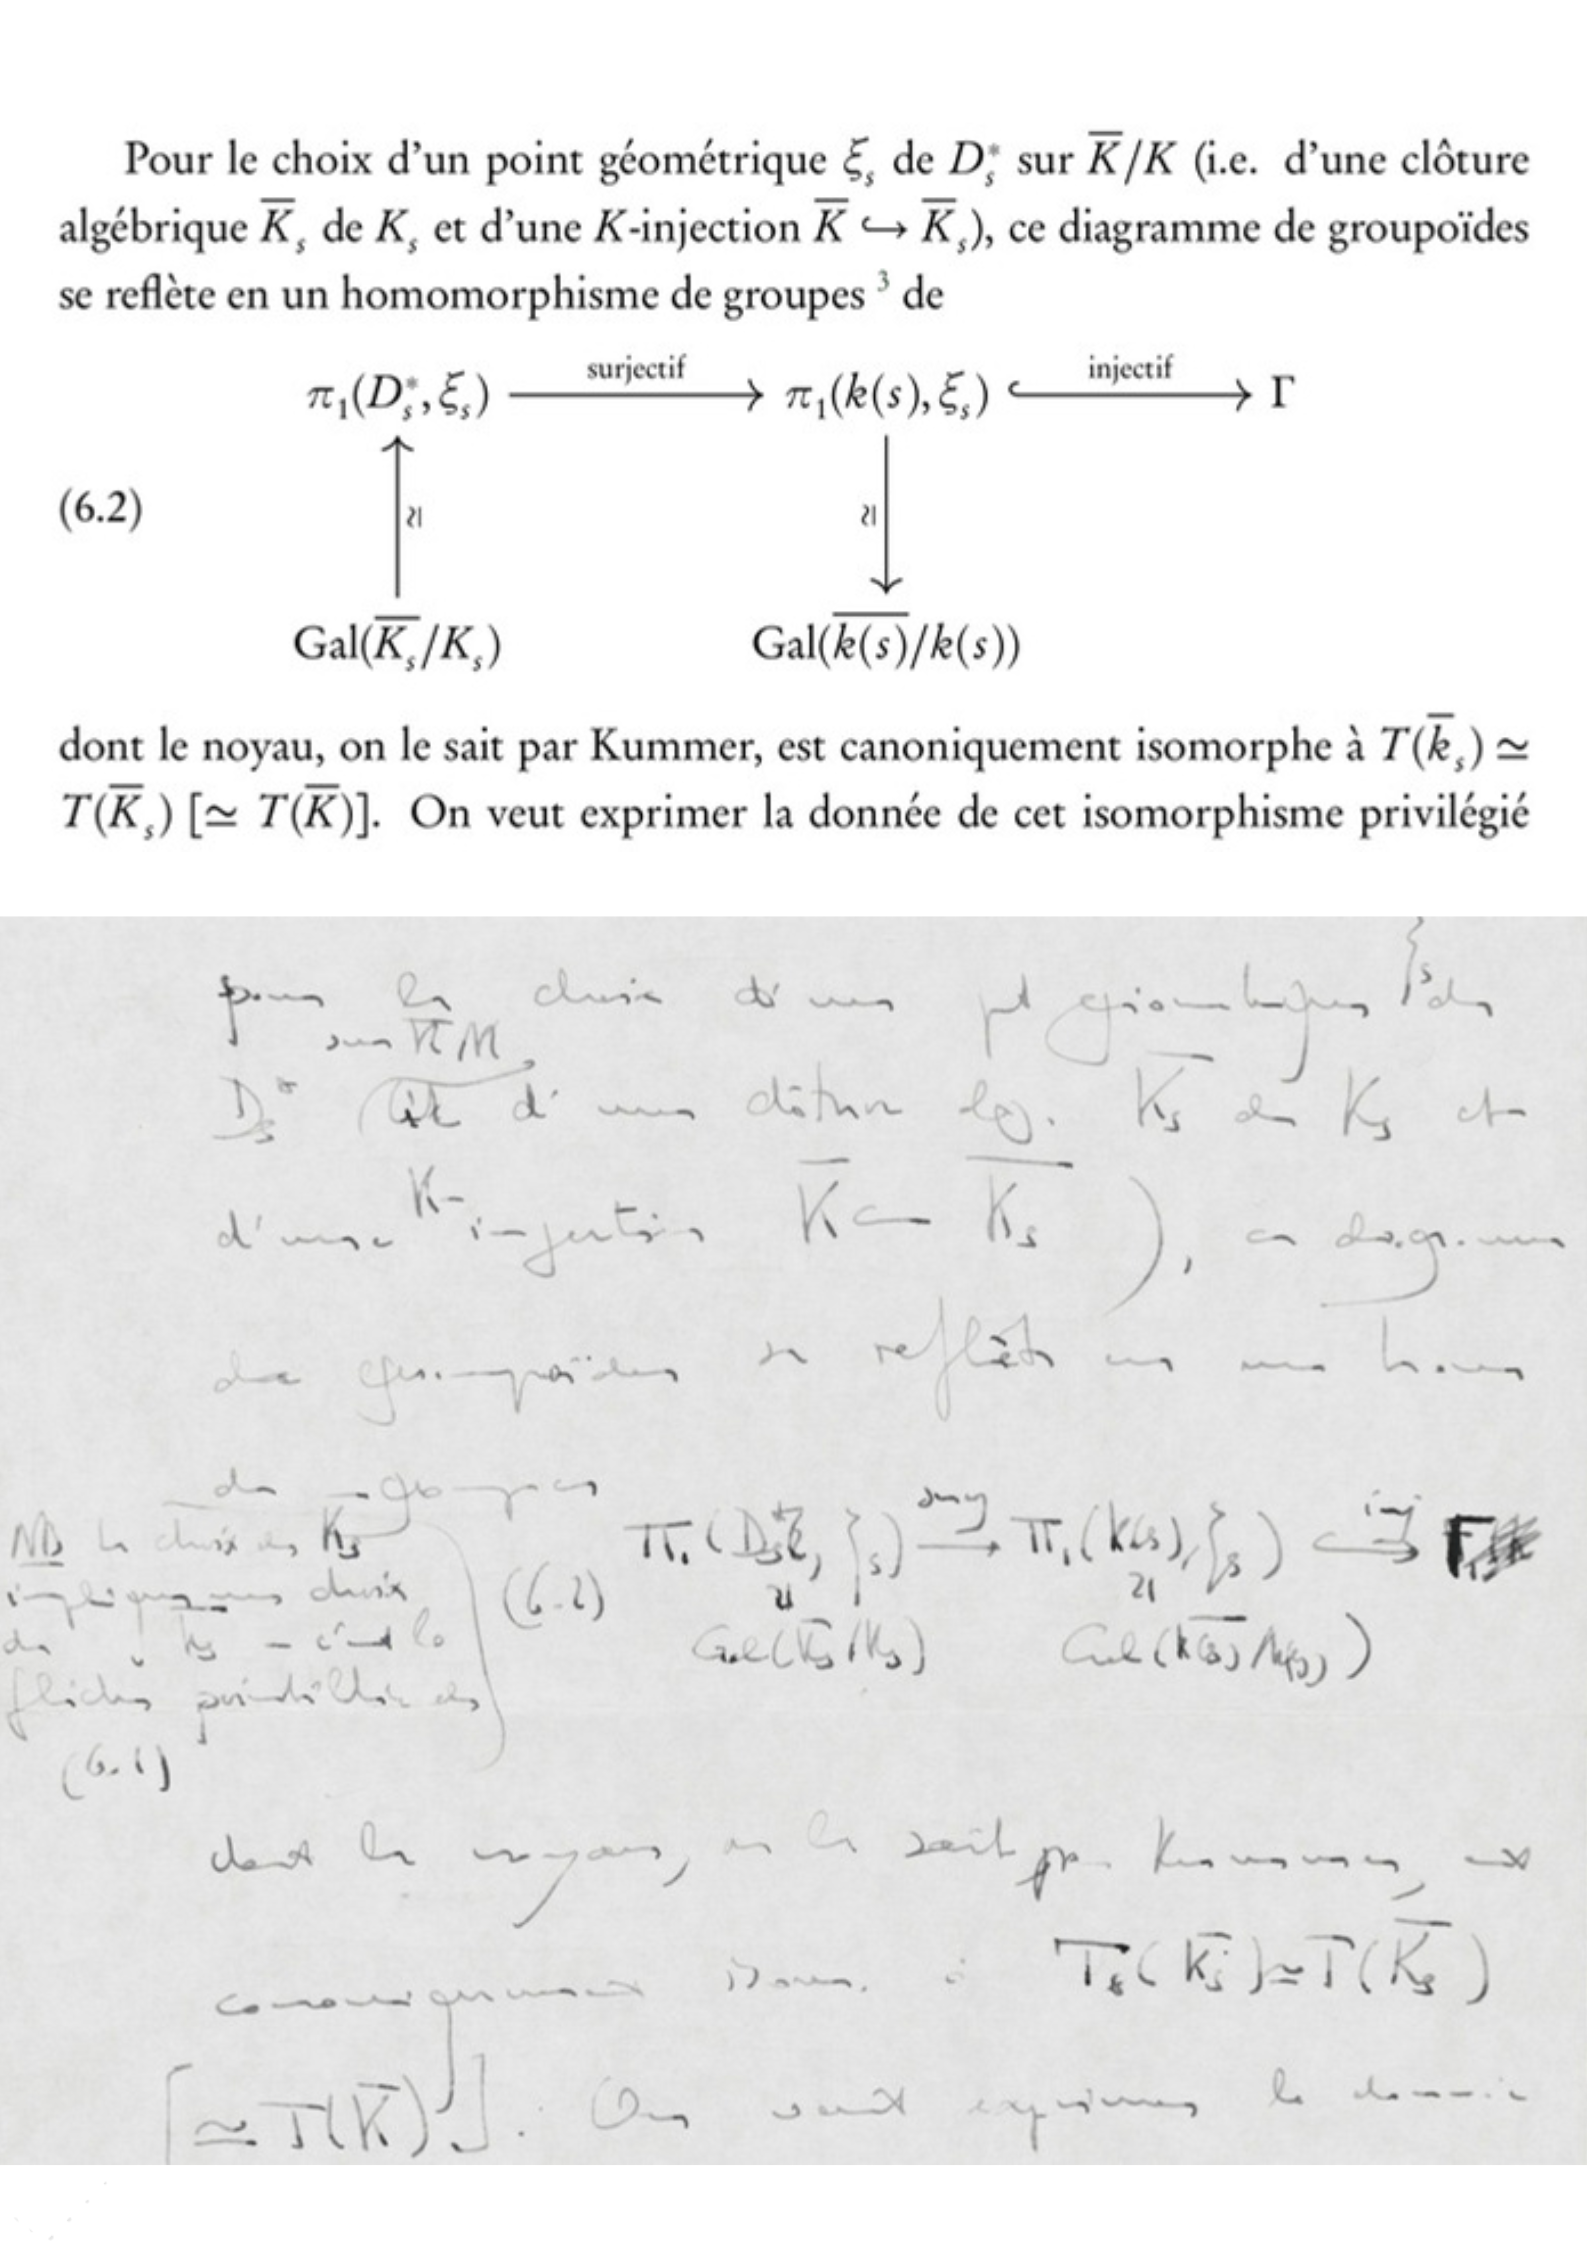 Pour le choix d'un point géométrique ξ_s de D_s^* sur K̅/K (i.e. d'une clôture
algébrique K̅_s de K_s et d'une K-injection K̅ ↪ K̅_s), ce diagramme de groupoïdes
se reflète en un homomorphisme de groupes ³ de
π₁(D_s^*, ξ_s) surjectif → π₁(k(s), ξ_s) injectif ↪ Γ
(6.2) ≀| ≀|
Gal(K̅_s/K_s) Gal(k(s)̅/k(s))
dont le noyau, on le sait par Kummer, est canoniquement isomorphe à T(k̅_s) ≃
T(K̅_s) [≃ T(K̅)]. On veut exprimer la donnée de cet isomorphisme privilégié
pour le choix d'un pt géométrique ξ_s de
sur K̅/K
D_s^* (i.e. d'une clôture alg. K̅_s de K_s et
d'une K-injection K̅ ↪ K̅_s ), ce diagramme
de groupoïdes se reflète en un hom
de groupes
π₁(D_s^*, ξ_s) surj → π₁(k(s), ξ_s) inj ↪ Γ
(6.2) ≀| ≀|
Gal(K̅_s/K_s) Gal(k(s)̅/k(s))
NB le choix de K̅_s
implique un choix
de k̅_s – c'est la
flèche pointillée de
(6.1)
dont le noyau, on le sait par Kummer, est
canoniquement isom. à T(k̅_s) ≃ T(K̅_s)
[≃ T(K̅)]. On veut exprimer la donnée